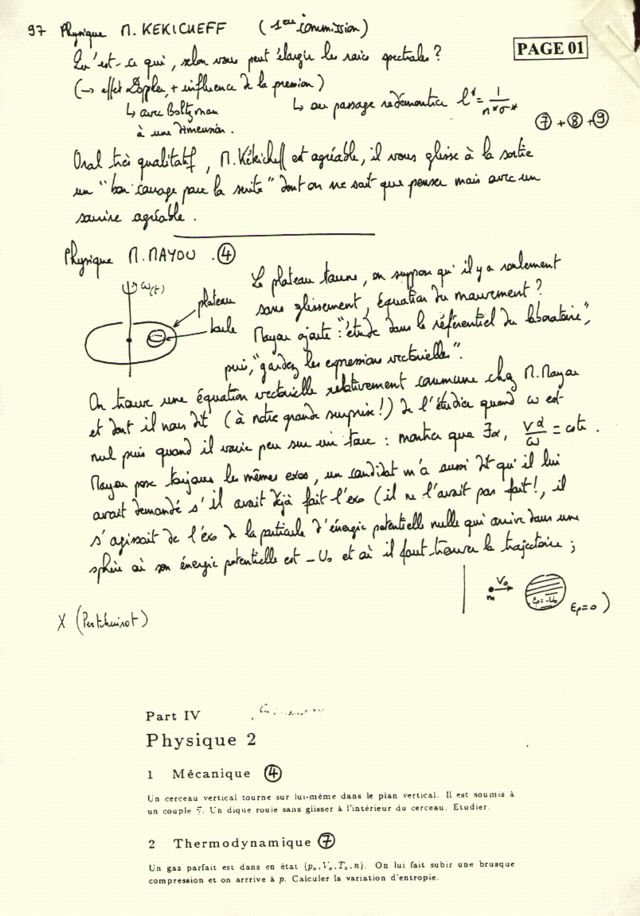 97 Physique M. KEKICHEFF (1ère commission)
PAGE 01
Qu'est-ce qui, selon vous peut élargir les raies spectrales ?
(→ effet Doppler, + influence de la pression)
↳ avec Boltzman
à une dimension.
↳ au passage redémontrer l* = 1/(n*σ*)
⑦ + ⑧ + ⑨
Oral très qualitatif, M. Kékicheff est agréable, il vous glisse à la sortie
un "bon courage pour la suite" dont on ne sait que penser mais avec un
sourire agréable.
Physique M. MAYOU. ④
ω(t)
plateau
boule
Le plateau tourne, on suppose qu'il y a roulement
sans glissement, équation du mouvement ?
Mayou ajoute : "étude dans le référentiel du laboratoire",
puis, "gardez les expressions vectorielles".
On trouve une équation vectorielle relativement commune chez M. Mayou
et dont il nous dit (à notre grande surprise !) de l'étudier quand ω est
nul puis quand il varie peu sur un tour : montrer que ∃α, v^α/ω = cste.
Mayou pose toujours les mêmes exos, un candidat m'a aussi dit qu'il lui
avait demandé s'il avait déjà fait l'exo (il ne l'avait pas fait !, il
s'agissait de l'exo de la particule d'énergie potentielle nulle qui arrive dans une
sphère où son énergie potentielle est -U₀ et où il faut trouver la trajectoire ;
m V₀ Ep=-U₀ Ep=0 )
X
Part IV
Physique 2
1 Mécanique ④
Un cerceau vertical tourne sur lui-même dans le plan vertical. Il est soumis à
un couple. Un dique roule sans glisser à l'intérieur du cerceau. Etudier.
2 Thermodynamique ⑦
Un gaz parfait est dans en état (p₀, V₀, T₀, n). On lui fait subir une brusque
compression et on arrrive à p. Calculer la variation d'entropie.